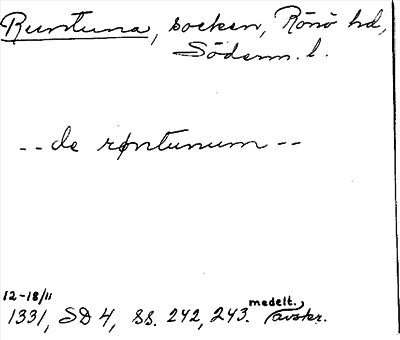 Runtuna, socken, Rönö hd,
Söderm. l.
-- de røntunum --
12-18/11
1331, SD 4, ss. 242, 243. medelt. avskr.